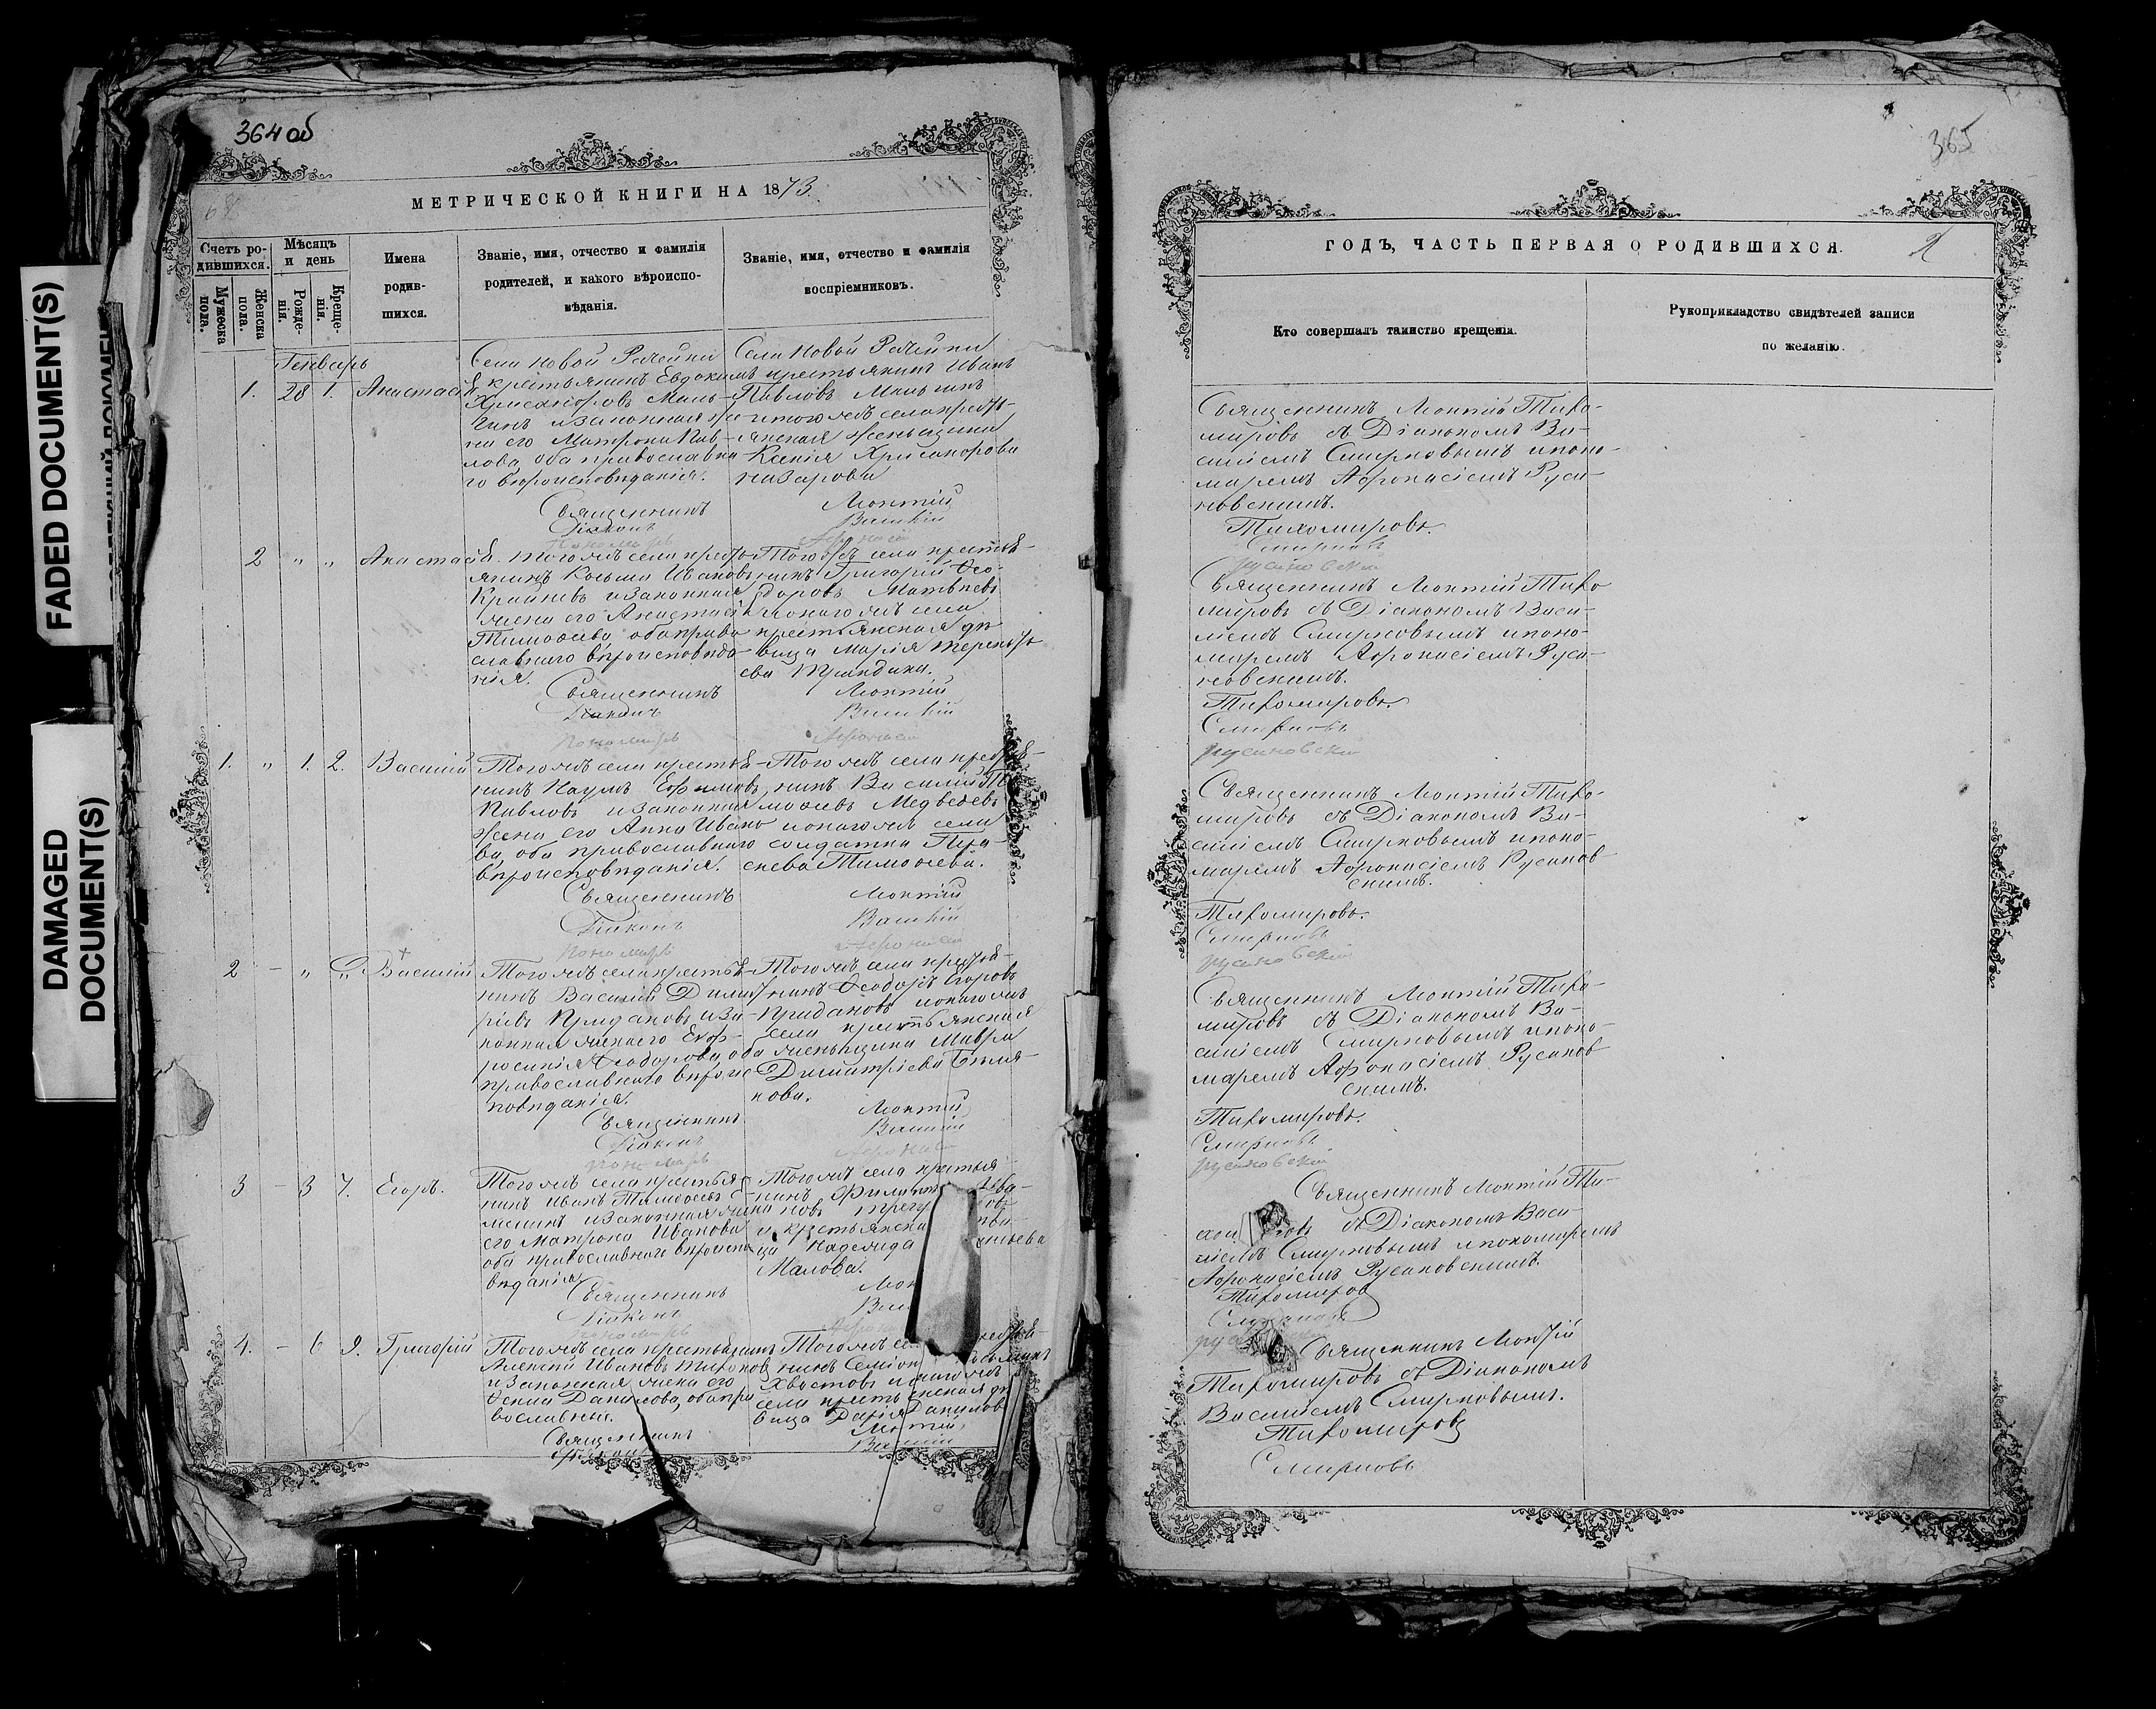 FADED DOCUMENT(S)
DAMAGED
DOCUMENT(S)
364 об
МЕТРИЧЕСКОЙ КНИГИ НА 1873.
Счетъ ро-
дившихся.
Мужеска
пола.
Женска
пола.
Мѣсяцъ
и день
Рожде-
нія.
Креще-
нія.
Имена
родив-
шихся.
Званіе, имя, отчество и фамилія
родителей, и какого вѣроиспо-
вѣданія.
Званіе, имя, отчество и фамилія
воспріемниковъ.
Генварь
1. 28 1. Анастасія
Села Новой Рачейки
крестьянинъ Евдокимъ
его Матрона Пав-
лова, оба православна-
го вѣроисповѣданія.
Села Новой Рачейки
крестьянинъ Иванъ
Павловъ
и того же села кресть-
янская женьщина
Ксенія Хрисанфорова
Назарова
Священникъ Леонтій
Діаконъ Василій
Пономарь Афонасій
2 " " Анастасія
Того же села кресть-
янинъ Козьма Ивановъ
Крайневъ и законная
жена его Анастасія
Тимофеева, оба право-
славнаго вѣроисповѣда-
нія.
Того же села крестья-
нинъ Григорій Фео-
доровъ Матвѣевъ
и онаго же села
крестьянская дѣ-
вица Марія Теренть-
ева
Священникъ Леонтій
Діаконъ Василій
пономарь Афонасій
1. " 1. 2. Василій
Того же села крестья-
нинъ Наумъ Ефимовъ
Павловъ и законная
жена его Анна Ивано-
ва, оба православнаго
вѣроисповѣданія.
Того же села крестья-
нинъ Василій Ти-
мофеевъ Медведевъ
и онаго же села
солдатка Пра-
скева Тимофеева.
Священникъ Леонтій
Діаконъ Василій
пономарь Афонасій
2 - " " Василій
Того же села крестья-
нинъ Василій Димит-
ріевъ Придановъ и за-
конная жена его Евф-
росинія Феодорова, оба
православнаго вѣроис-
повѣданія.
Того же села крестья-
нинъ Феодоръ Егоровъ
Придановъ и онаго же
села крестьянская
женьщина Мавра
Димитріева Беля-
кова.
Священникъ Леонтій
Діаконъ Василій
пономарь Афонасій
3 - 3 7. Егоръ.
Того же села крестья-
нинъ Иванъ Тимофеевъ Се-
менинъ и законная жена
его Матрона Иванова
оба православнаго вѣроиспо-
вѣданія
Того же села крестья-
нинъ Филип
и крестьянска
ца Надежда
Малова.
Священникъ
Діаконъ
пономарь
4. - 6 9. Григорій
Того же села крестьянинъ
Алексій Ивановъ Тихонов
и законная жена его
Данилова, оба пра-
вославные.
Того же се
нинъ Семіон
Хвостовъ и онаго же
села крестьянская дѣ-
вица Дарія Данилов
Священникъ Леонтій
Діаконъ Василій
365
ГОДЪ, ЧАСТЬ ПЕРВАЯ О РОДИВШИХСЯ.
2
Кто совершалъ таинство крещенія.
Рукоприкладство свидѣтелей записи
по желанію.
Священникъ Леонтій Тихо-
мировъ съ Діакономъ Ва-
силіемъ Смирновымъ и поно-
маремъ Афонасіемъ Руса-
новскимъ.
Тихомировъ.
Смирновъ
Русановскій
Священникъ Леонтій Тихо
мировъ съ Діакономъ Васи-
ліемъ Смирновымъ и поно-
маремъ Афонасіемъ Руса-
новскимъ.
Тихомировъ.
Смирновъ
Русановскій
Священникъ Леонтій Тихо-
мировъ съ Діакономъ Ва-
силіемъ Смирновымъ и поно-
маремъ Афонасіемъ Русанов-
скимъ.
Тихомировъ.
Смирновъ
Русановскій
Священникъ Леонтій Тихо-
мировъ съ Діакономъ Ва-
силіемъ Смирновымъ и поно-
маремъ Афонасіемъ Русанов
скимъ.
Тихомировъ.
Смирновъ
Русановскій
Священникъ Леонтій Ти-
съ Діакономъ Васи-
ліемъ Смирновымъ и пономаремъ
Афонасіемъ Русановскимъ.
Тихомировъ
Смирновъ
Священникъ Леонтій
Тихомировъ съ Діакономъ
Василіемъ Смирновымъ.
Тихомировъ
Смирновъ